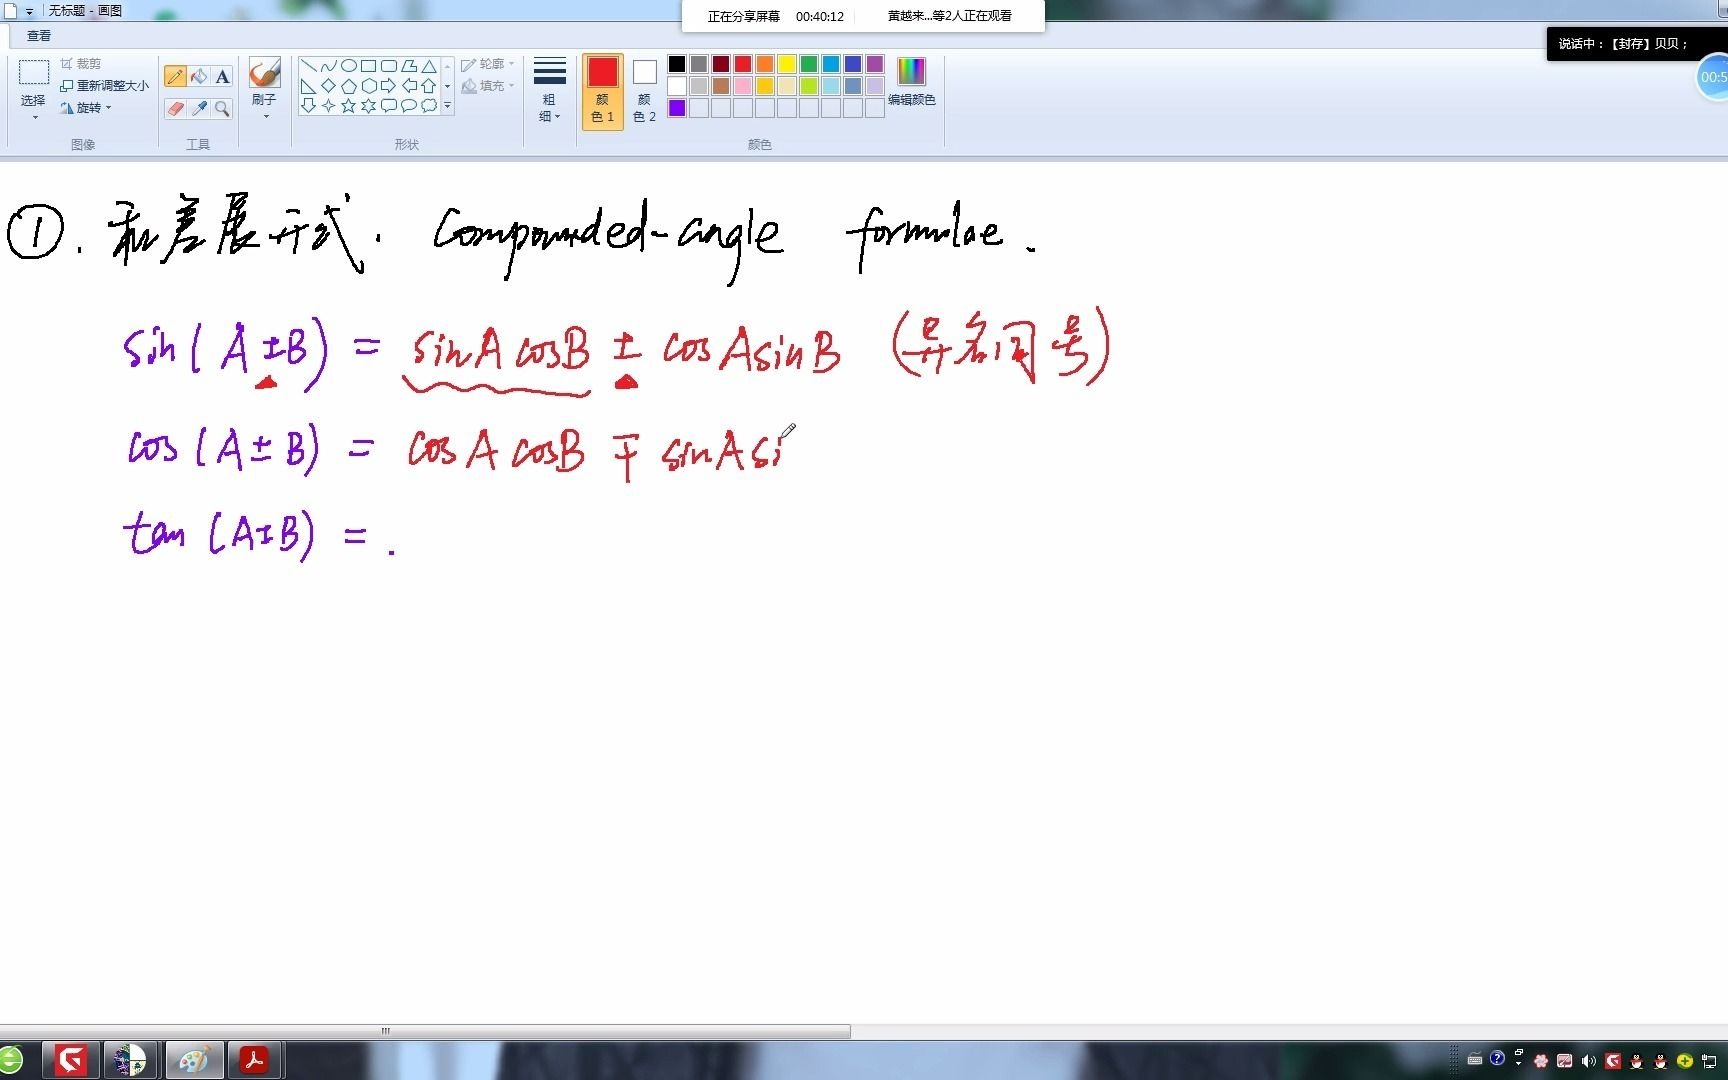 无标题 - 画图
正在分享屏幕 00:40:12 黄越来...等2人正在观看
查看
说话中：【封存】贝贝；
00:5
选择
裁剪
重新调整大小
旋转
图像
A
工具
刷子
轮廓
填充
形状
粗细
颜色 1
颜色 2
编辑颜色
颜色
①. 和差展开式. Compounded-angle formulae.
sin(A±B) = sinA cosB ± cosAsinB (异名同号)
cos(A±B) = cosA cosB ∓ sinAsi
tan(A±B) = .